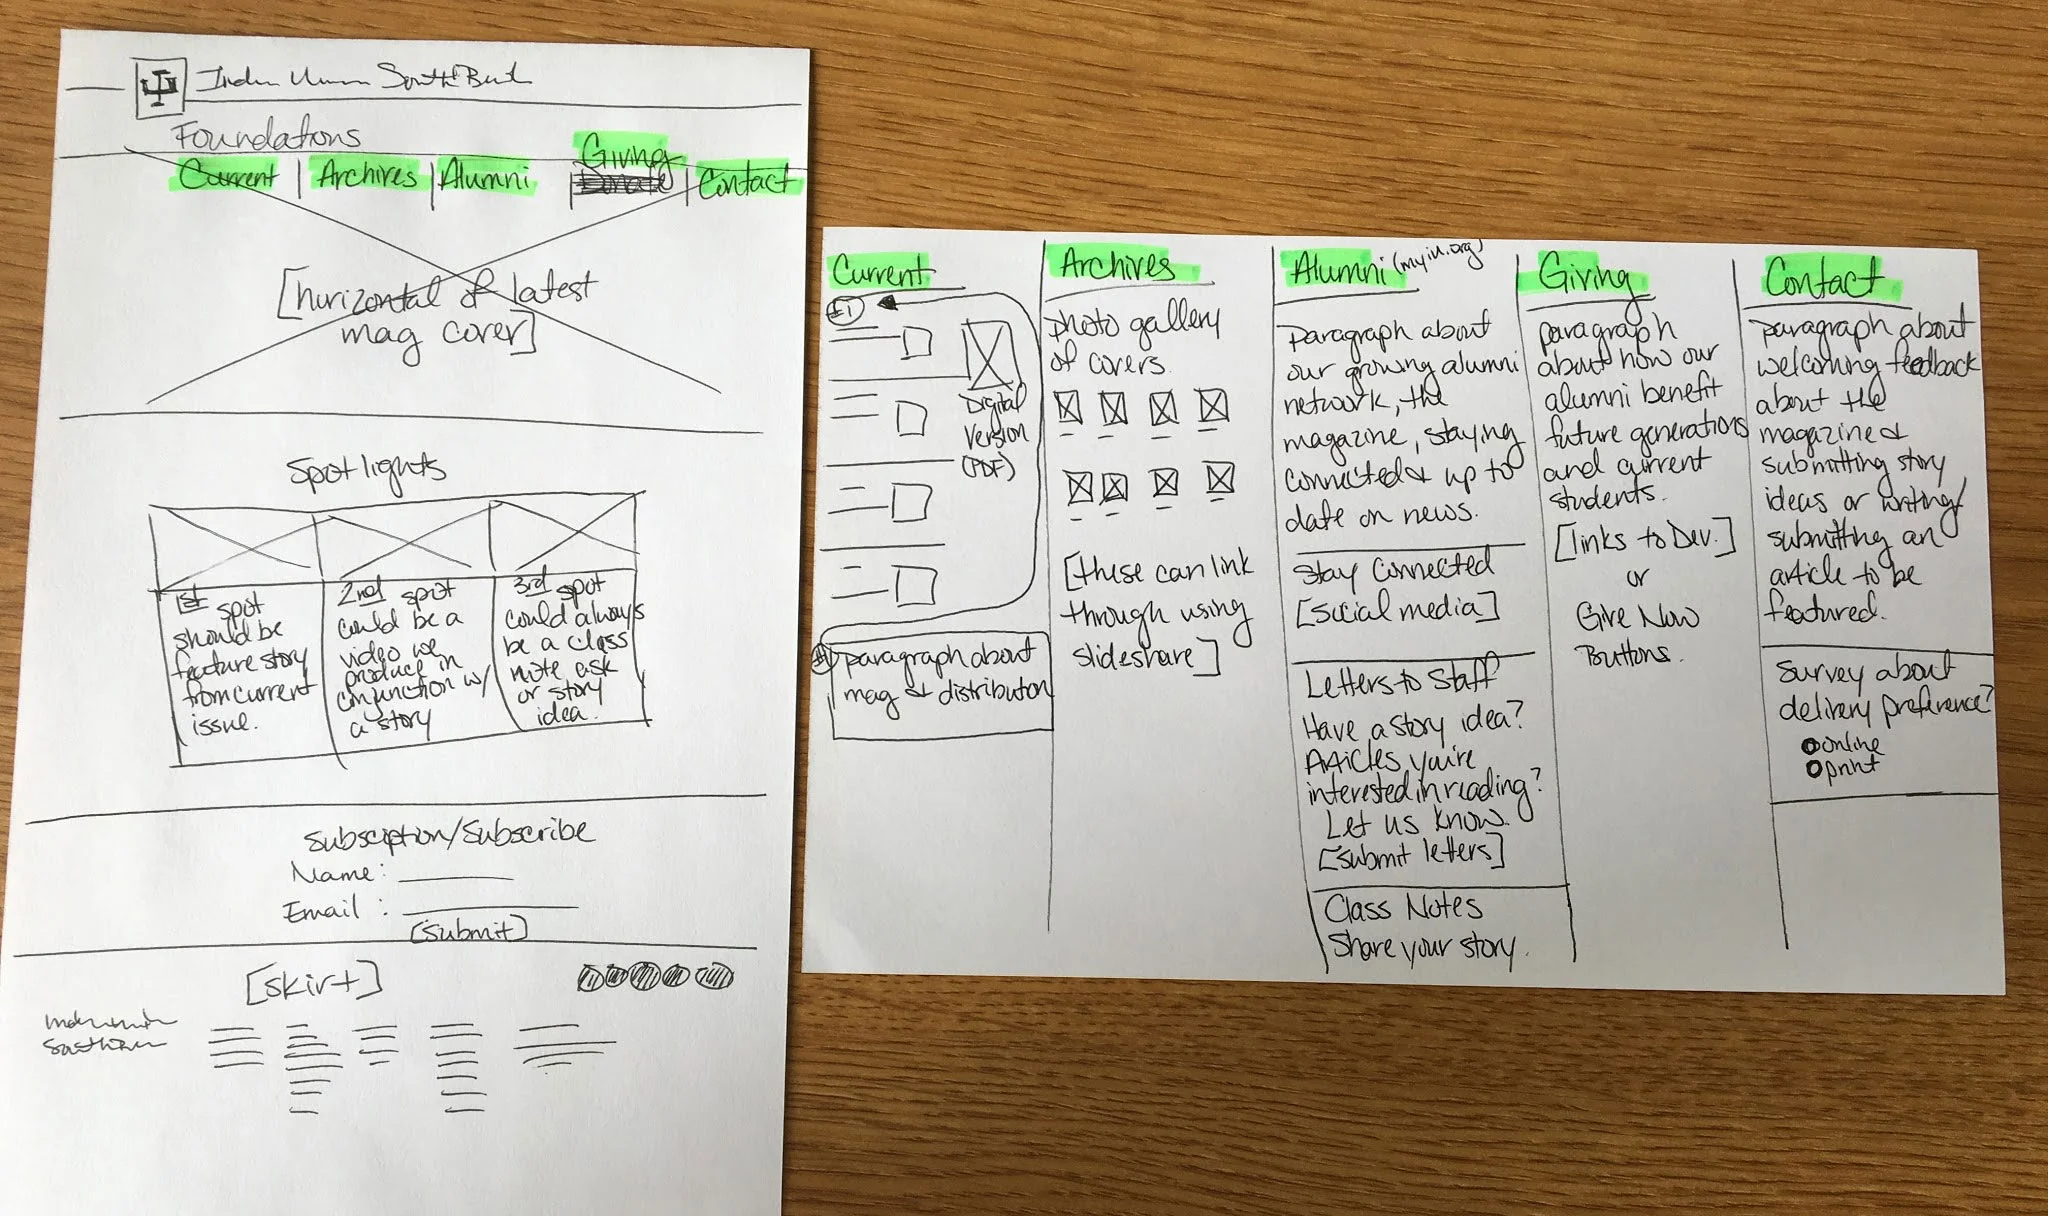 South Bend
Foundations
Giving
Current | Archives | Alumni | Donate | Contact
[horizontal of latest
mag cover]
Spotlights
1st spot
should be
feature story
from current
issue.
2nd spot
could be a
video we
produce in
conjunction w/
a story
3rd spot
could always
be a class
note ask
or story
idea.
Subsciption/Subscribe
Name:
Email:
[submit]
[skirt]
Current
#1
Digital
Version
(PDF)
paragraph about
mag & distribution
Archives
photo gallery
of covers.
[these can link
through using
slideshare]
Alumni (myiu.org)
paragraph about
our growing alumni
network, the
magazine, staying
connected & up to
date on news.
Stay Connected
[social media]
Letters to Staff
Have a story idea?
Articles you're
interested in reading?
Let us know.
[submit letters]
Class Notes
Share your story.
Giving
paragraph
about how our
alumni benefit
future generations
and current
students.
[links to Dev.]
or
Give Now
Buttons.
Contact
paragraph about
welcoming feedback
about the
magazine &
submitting story
ideas or writing/
submitting an
article to be
featured.
Survey about
delivery preference?
online
print